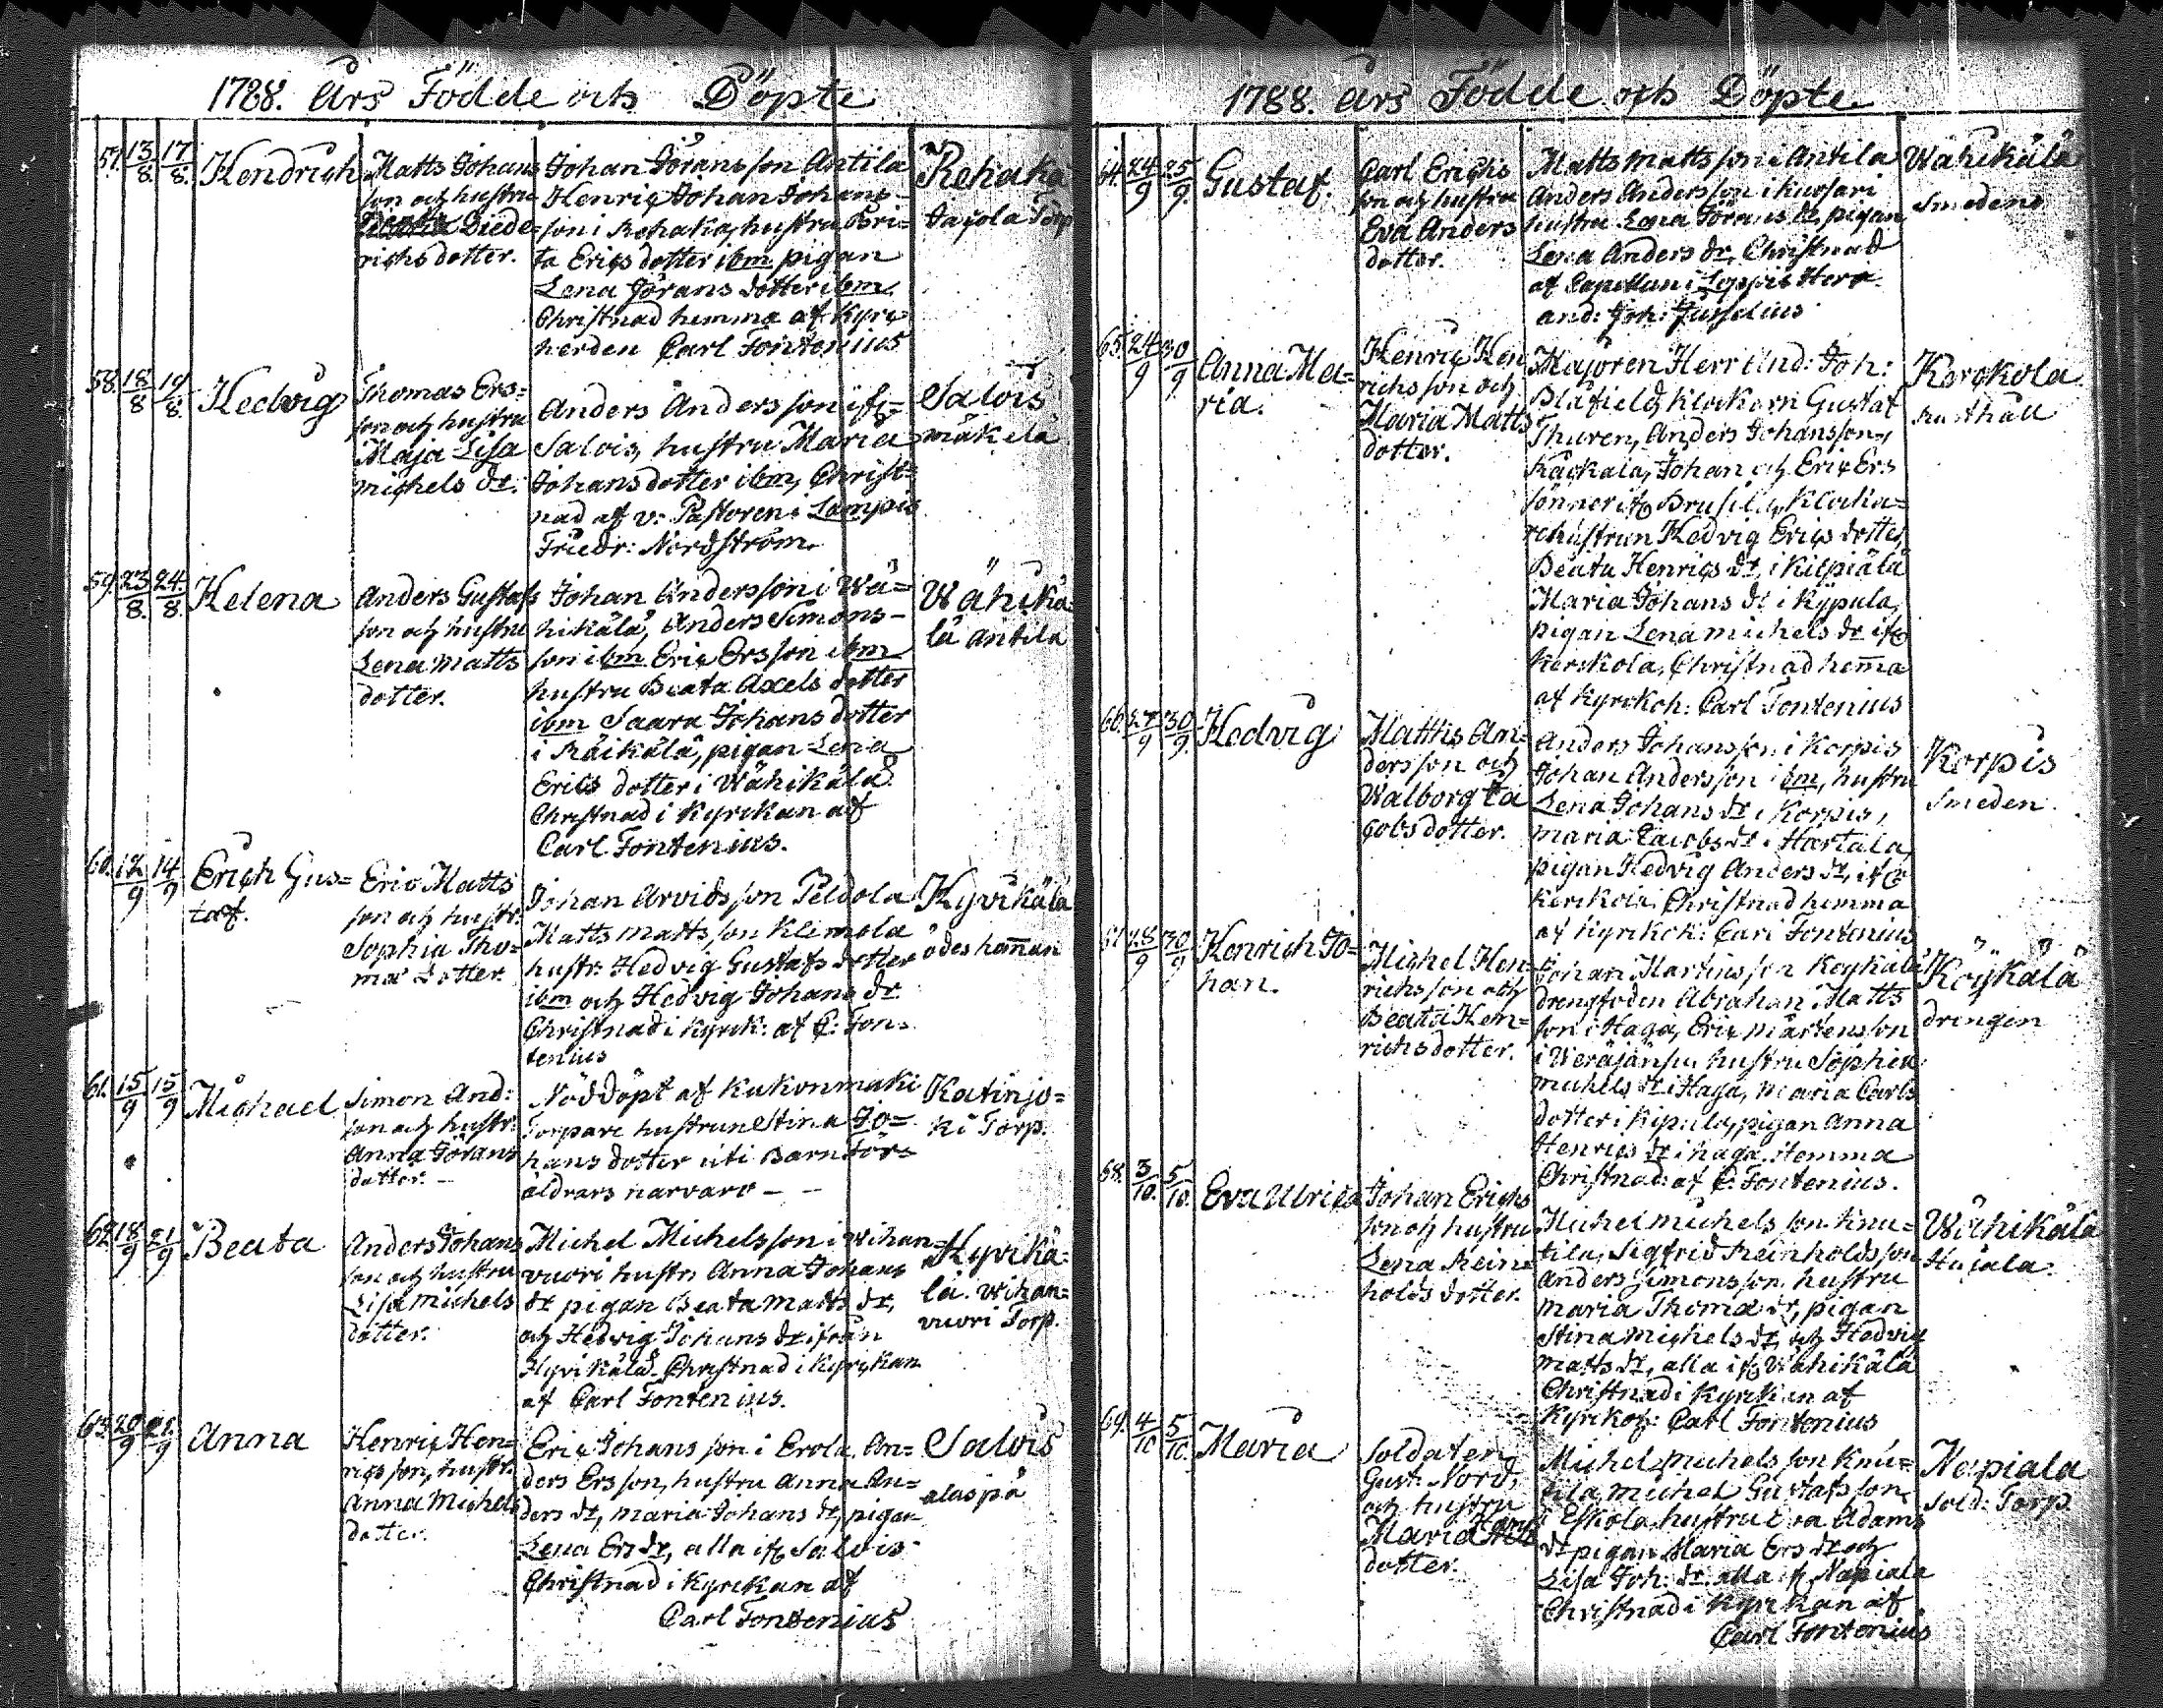 1788. års Födde och Döpte
57. 13/8. 17/8. Hendrich
Matts Johans
son och hustru
Diede=
richs dotter.
Johan Göransson Antila
Henric Johan Johans-
son i Rehaka, hustru Bri=
ta Erics dotter ibm pigan
Lena Görans dotter ibm
Christnad hemma af Kyrc
herden Carl Fontenius
Rehaka
Jacola Torp
58. 18/8 19/8. Hedvig
Thomas Ers=
son och hustru
Maja Lisa
Michels dr.
Anders Andersson ifr=
Salois, hustru Maria
Johansdotter ibm, Christ=
nad af v: Pastoren i Lampis
Friedr: Nordström.
Salois
mäkelä
59. 23/8. 24./8. Helena
Anders Gustafs
son och hustru
Lena Matts
dotter.
Johan Andersson i Wä=
hikälä, Anders Simons-
son ibm Eric Ersson ibm
hustru Beata Axels dotter
ibm Saara Johans dotter
i Räikälä, pigan Lena
Erics dotter i Wähikälä
Christnad i Kyrckan af
Carl Fontenius.
Wähikä=
lä Antila
60. 12/9 14/9 Erich Gus=
taf.
Eric Matts
son och hustr:
Sophia Tho=
mæ Dotter
Johan Arvidsson Peldola
Matts Mattsson Klemola
hustr: Hedvig Gustafs dotter
ibm och Hedvig Johans dr
Christnad i Kyrck: af C: Fon=
tenius
Kyvikälä
ödes hem̄an
61. 15/9 15/9 Michael
Simon And:
son och hustr:
Anna Görans
dotter. -
Nöddöpt af Kukonmäki
Torpare hustrun Stina Jo=
hans dotter uti Barn För=
äldrars närvaro - -
Katinjo=
ki Torp.
62. 18/9 21/9 Beata
Anders Johans
son och hustru
Lisa Michels
dotter.
Michel Michelsson i Wihan=
vuori hustr: Anna Johans
dr pigan Beata Matts dr,
och Hedvig Johans dr ifrån
Kyvikälä. Christnad i Kyrckan
af Carl Fontenius.
Kyvikä=
lä. Wihan=
vuori Torp.
63. 20/9 21./9 Anna
Henric Hen=
ricsson, hustr:
Anna Michels
dotter.
Eric Johansson i Erola, An=
ders Ersson, hustru Anna An=
ders dr, Maria Johans dr, pigan
Lena Ers dr, alla ifr Salois
Christnad i Kyrckan af
Carl Fontenius
Salois
alaspä
1788. års Födde och Döpte
64. 24/9 25/9. Gustaf.
Carl Erichs
son och hustru
Eva Anders
dotter.
Matts Mattsson i Antila
Anders Andersson i Kursari
hustru Lena Görans dr, pigan
Lena Anders dr, Christnad
af Capellan i Loppis Herr
And: Joh: Jusselius
Wähikälä
Smedens
65. 24/9 30/9 Anna Ma=
ria.
Henric Hen
richsson och
Maria Matts
dotter.
Majoren Herr And: Joh:
Blåfield, Klockarn Gustaf
Thuren, Anders Johansson
Käckälä, Johan och Eric Ers
söner ifr Brusila, Klocka=
rehustrun Hedvig Erics dotter
Beata Henrics dr, i Kilpiälä
Maria Johans dr i Kypula,
pigan Lena Michels dr ifr
Kerskola, Christnad hem̄a
af Kyrckoh: Carl Fontenius
Kerckola
rusthåll
66. 27/9 30/9. Hedvig
Matthis An=
dersson och
Walborg Ja
cobs dotter.
Anders Johansson i Korpis
Johan Andersson ibm, hustru
Lena Johans dr i Korpis,
Maria Jacobs dr i Hartala,
pigan Hedvig Anders dr, ifr
Kerckola Christnad hemma
af Kyrckoh: Carl Fontenius
Korpis
Smeden.
67. 28/9 30/9 Henrich Jo=
han.
Michel Hen=
richsson och
Beata Hen=
richs dotter.
Johan Martinsson Köykälä
drengfoden Abraham Matts
son i Haga, Eric Mårtensson
i Weräjänsu hustru Sophia
Michels dr i Haga, Maria Carls
dotter i Kipula, pigan Anna
Henrics dr i Haga. Hemma
Christnad: af C: Fontenius.
Köykälä
drengen
68. 3/10. 5/10. Eva Ulrica
Johan Erichs
son och hustru
Lena Rein=
holds dotter.
Michel Michelsson Knu=
tila, Sigfrid Reinholdsson
Anders Simonsson hustru
Maria Thomæ dr, pigan
Stina Michels dr, och Hedvig
Matts dr, alla ifr Wähikälä
Christnad i Kyrckan af
Kyrkoh: Carl Fontenius
Wähikälä
Hujala.
69. 4/10 5/10. Maria
Soldaten
Gust: Nord,
och hustru
Maria
dotter.
Michel Michelsson Knu=
tila Michel Gustafsson
i Eskola, hustru Eva Adams
dr pigan Maria Ers dr och
Lisa Joh: dr. alla ifr Napiala
Christnad i Kyrckan af
Carl Fontenius
Napiala
Sold: Torp